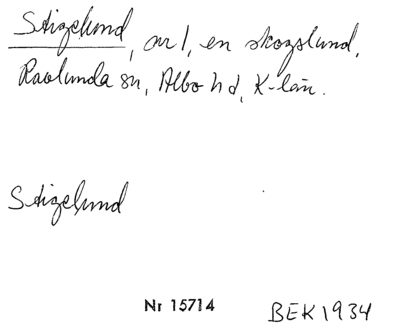 Stigelund, avl, en skogslund,
Ravlunda sn, Albo hd, K-län.
Stigelund
Nr 15714
BEK 1934